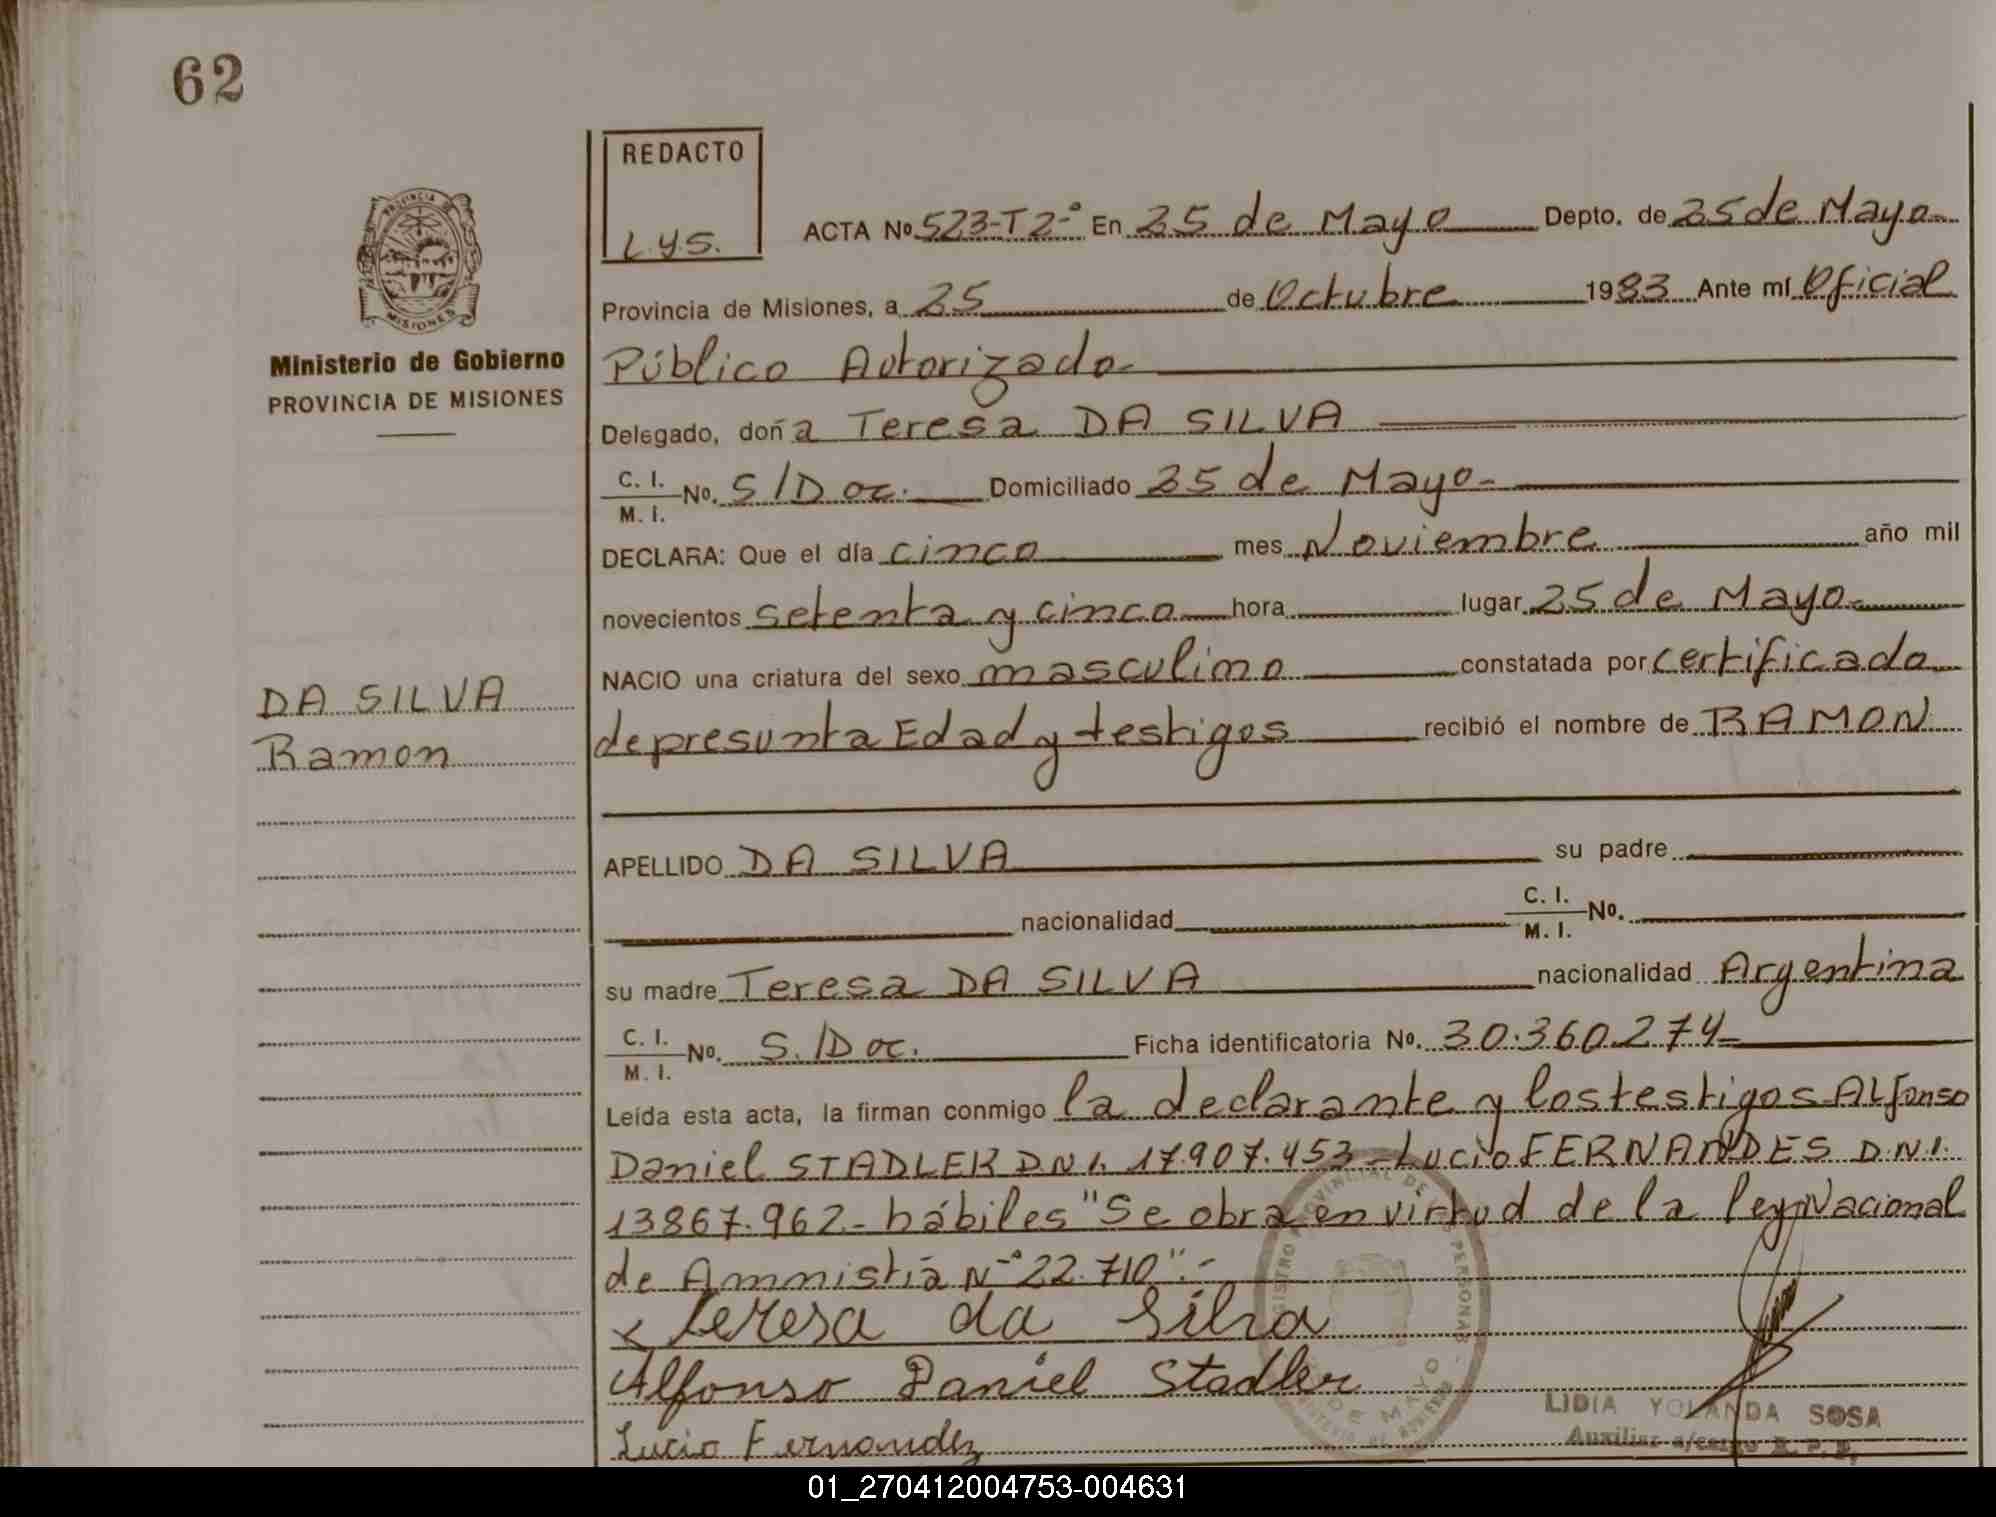 62
REDACTO
L.Y.S.
ACTA Nº 523-T2-º En 25 de Mayo Depto. de 25 de Mayo
Provincia de Misiones, a 25 de Octubre 1983 Ante mí Oficial
Público Autorizado
Delegado, doña Teresa DA SILVA
C. I. / M. I. Nº. S/Doc. Domiciliado 25 de Mayo-
DECLARA: Que el día cinco mes Noviembre año mil
novecientos setenta y cinco hora lugar 25 de Mayo-
NACIO una criatura del sexo masculino constatada por certificado
de presunta Edad y testigos recibió el nombre de RAMON
APELLIDO DA SILVA su padre
nacionalidad C. I. / M. I. Nº.
su madre Teresa DA SILVA nacionalidad Argentina
C. I. / M. I. Nº. S./Doc. Ficha identificatoria Nº. 30.360.274-
Leída esta acta, la firman conmigo la declarante y los testigos Alfonso
Daniel STADLER D.N.I. 17.907.453-Lucio FERNANDES D.N.I.
13867.962- hábiles "Se obra en virtud de la ley Nacional
de Amnistía N-º 22.710".-
x Teresa da Silva
Alfonso Daniel Stadler
Lucio Fernandez
PROVINCIA DE
MISIONES
Ministerio de Gobierno
PROVINCIA DE MISIONES
DA SILVA
Ramon
REGISTRO PROVINCIAL DE LAS PERSONAS
DE MAYO
LIDIA YOLANDA SOSA
Auxiliar a/cargo R. P. P.
01_270412004753-004631